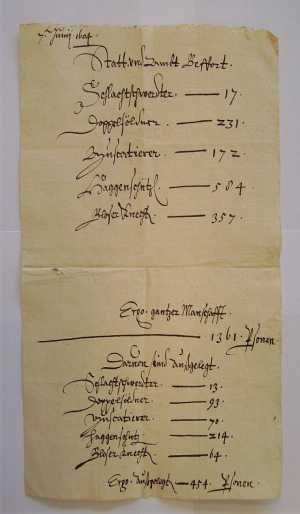 Junij 1604.
Statt und Ambt Beffort.
Schlachtschwerdter. — 17.
Doppelsöldner. — 231.
Mußcatierer. — 172.
Haggenschitz. — 584.
Bloser knecht. — 357.
Ergo. gantzer Manschafft.
— 1361. Psonen
Darvon sind Außgelegt.
Schlachtschwerdter — 13.
Doppelseldner — 93.
Mußcatierer — 70.
Haggenschitz — 214.
Bloser knecht. — 64.
Ergo. Außgelegt — 454. Psonen